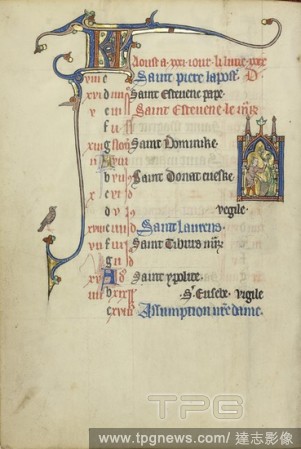 Aoust a .xxxi. iours. li lune .xxx.
viii c Saint piere lapost. D
xvi d iiii Saint Estevene pape.
v e iii Saint Estevene le mir.
f ii
g non Saint Dominike.
A viii
b vii Saint Donat eveske.
x c vi
d v vigile.
xviii e iiii Saint Laurens.
vii f iii Saint Tiburs mir.
g ii
xv A id Saint ypolite.
iiii b xix S. Eusebe. vigile
c xviii Assumption nre dame.
TPG
www.tpgnews.com/ 達志影像